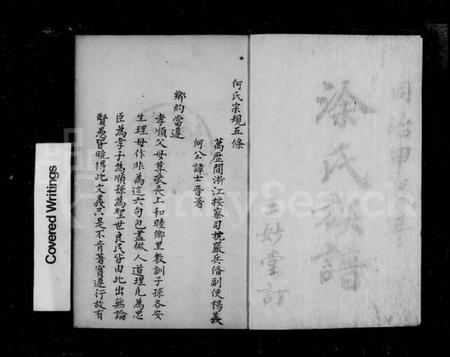 何氏宗規五條
萬歷間浙江按察司枕嚴兵備副使揚義
何公諱士晋著
鄉約當遵
孝順父母尊敬長上和睦鄉里教訓子孫各安
生理毋作非為這六句包盡做人道理凡為忠
臣為孝子為順孫為聖世良民皆由此出無論
賢愚皆曉得此文義只是不肯著實遵行故有
涂氏族譜
三妙堂訂
Covered Writings
FamilySearch